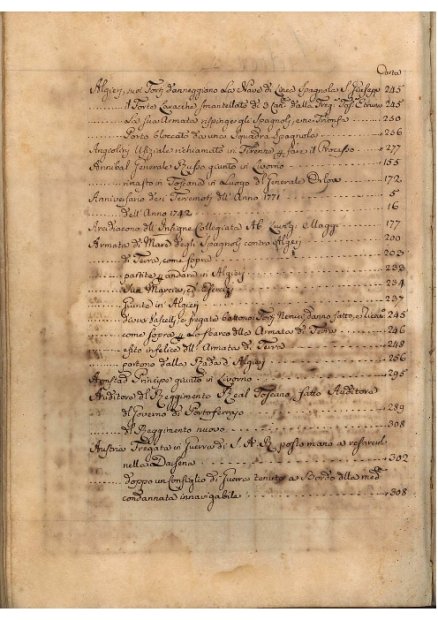 Carta
Algieri, suoi Forti danneggiono La Nave di Linea Spagnola S. Giuseppe 245
il Forte Larache smantellato da 3 Can. dalla Freg. Tos. Etruria 245
La sua Armata respinge gli Spagnoli, e ne Trionfa 250
Porto bloccato da una Squadra Spagnola 256
Angiolini Ufiziale richiamato in Firenze per il Processo 277
Annibal Generale Russo giunto in Livorno 155
rimasto in Toscana in Luogo del Generale 172
Anniversario dei Terremoti dell' Anno 1771 5
dell' Anno 1742 16
Arcidiacono dell' Insigne Collegiata Ab. Maggi 177
Armata di Mare degli Spagnoli contro Algieri 200
di Terra, come sopra 203
partita per andare in Algieri 233
Sua Marcia, ed Esercizi 234
giunta in Algieri 237
di vascelli, e fregate battono Forti Nemici 245
come sopra per Lo sbarco della Armata di Terra 246
esito infelice dell' Armata di Terra 248
partono dalla Rada di Algieri 256
Principe giunto in Livorno 295
Auditore del Reggimento Real Toscano, fatto Auditore
del Governo di Portoferraio 289
del Reggimento nuovo 308
Austria Fregata in guerra di S. A. R. posto mano a
nella Darsena 302
doppo un Consiglio di Guerra tenuto a Bordo della med.
condannata innavigabile 308